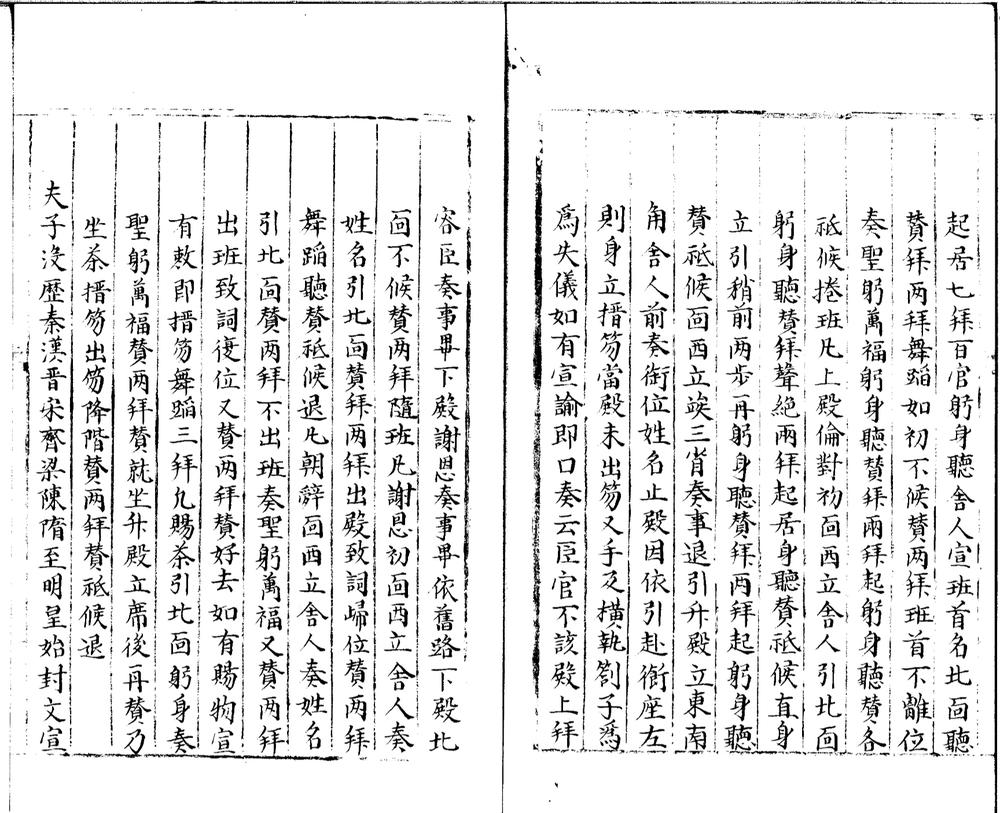 起居七拜百官躬身聽舎人宣班首名北面聽
賛拜两拜舞蹈如初不候賛两拜班首不離位
奏聖躬萬福躬身聽賛拜兩拜起躬身聽賛各
祗候捲班凡上殿倫對初面西立舎人引北面
躬身聽賛拜聲絕兩拜起居身聽賛祗候直身
立引稍前两步再躬身聽賛拜两拜起躬身聽
賛祗候面西立竢三省奏事退引升殿立東南
角舎人前奏銜位姓名止殿因依引赴御座左
則身立搢笏當殿未出笏又手及横執劄子爲
爲失儀如有宣諭即口奏云臣官不該殿上拜
容臣奏事畢下殿謝恩奏事畢依舊路下殿北
面不候賛两拜隨班凡謝恩初面西立舎人奏
姓名引北面賛拜两拜出殿致詞歸位賛两拜
舞蹈聽賛祗候退凡朝辭面西立舎人奏姓名
引北面賛两拜不出班奏聖躬萬福又賛两拜
出班致詞復位又賛两拜賛好去如有賜物宣
有敕即搢笏舞蹈三拜凡賜茶引北面躬身奏
聖躬萬福賛两拜賛就坐升殿立席後再賛乃
坐茶搢笏出笏降階賛两拜賛祗候退
夫子没歷秦漢晋宋齊梁陳隋至明皇始封文宣